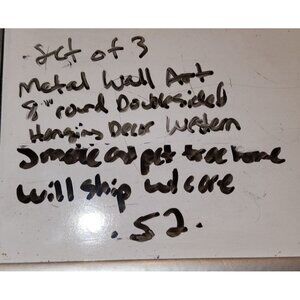 Set of 3
Metal Wall Art
8" round Doublesided
Hanging Decor Western
Smoke and pet free home
will ship w/ care
.52.